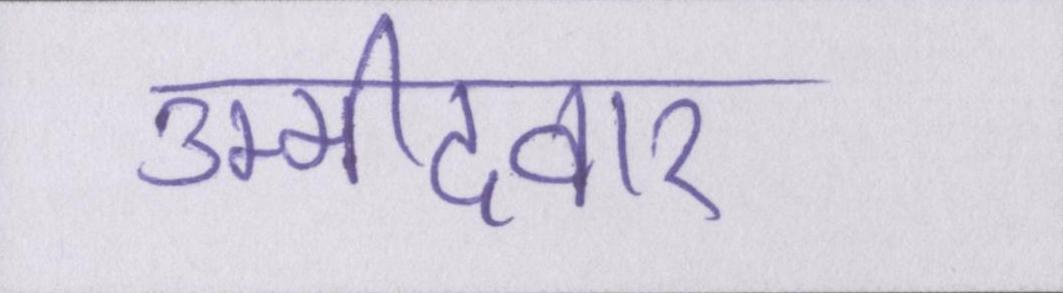 उम्मीदवार